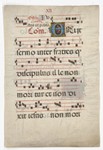 Com. Exiit
sermo inter fratres
discipulus ille non
moritur et non di
xit iesus non mori